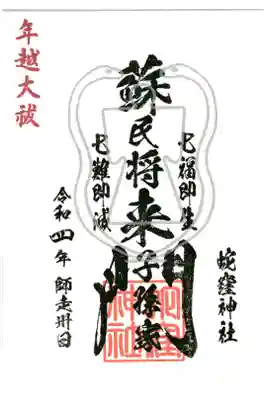 蛇窪神社
七福即生
蘇民将来子孫家門
七難即滅
令和四年 師走卅日
年越大祓
蛇窪
神社